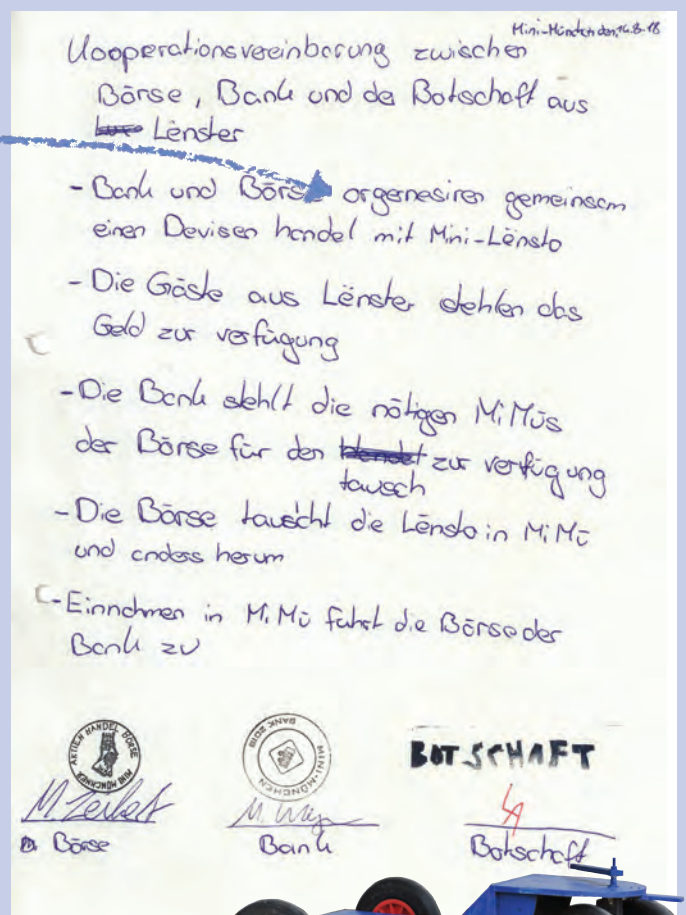 Mini-München den, 14.8.18
Kooperationsvereinbarung zwischen
Börse, Bank und der Botschaft aus
Lënster
- Bank und Börse orgernesiren gemeinsam
einen Devisen handel mit Mini-Lënsto
- Die Gäste aus Lënster stehlen das
Geld zur verfügung
- Die Bank stehlt die nötigen MiMüs
der Börse für den zur verfügung
tausch
- Die Börse tauscht die Lënsto in MiMü
und anders herum
- Einnahmen in MiMü führt die Börse der
Bank zu
AKTIEN HANDEL BÖRSE
MINI MÜNCHNER
BANK 2018
MINI-MÜNCHEN
BOTSCHAFT
Börse
Bank
Botschaft